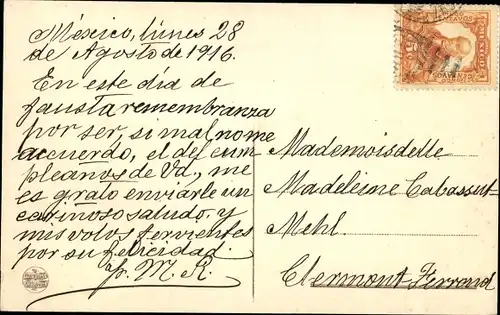 México, lunes 28
de Agosto de 1916.
En este día de
fausta remembranza
por ser, si mal no me
acuerdo, el del cum
pleaños de Vd., me
es grato enviarle un
cariñoso saludo, y
mis votos fervientes
por su felicidad.
fr. M. R.
Mademoiselle
Madeleine Cabassut-
Mehl.
Clermont-Ferrand
CENTAVOS
MEXICO